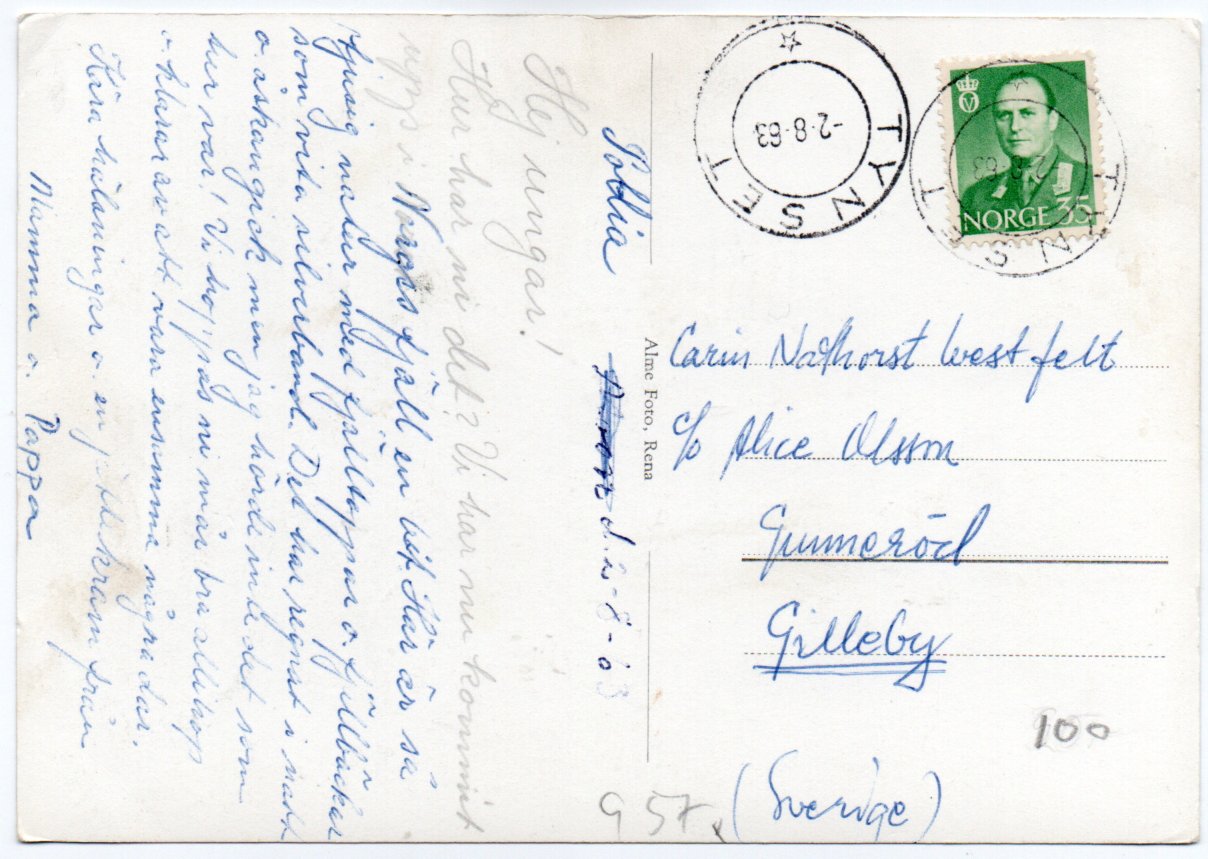 Tolvja
d. 2-8-63
Hej ungar!
Hur har ni det? Vi har nu kommit
upp i Norges fjäll en bit. Här är så
tjusig natur med fjälltoppar o. fjällbäckar
som vita silverband. Det har regnat i natt
o. åskan gick men jag hörde inte det som
tur var! Vi hoppas ni mår bra allihop
o. klarar av att vara ensamma några dar.
Kära hälsningar o. en jättekram från
Mamma o. Pappa
Alme Foto, Rena
TYNSET
-2.8.63
TYNSET
2.8.63
NORGE 35
Carin Nathorst Westfelt
c/o Alice Olsson
Gunneröd
Gilleby
(Sverige)
100
G 57.